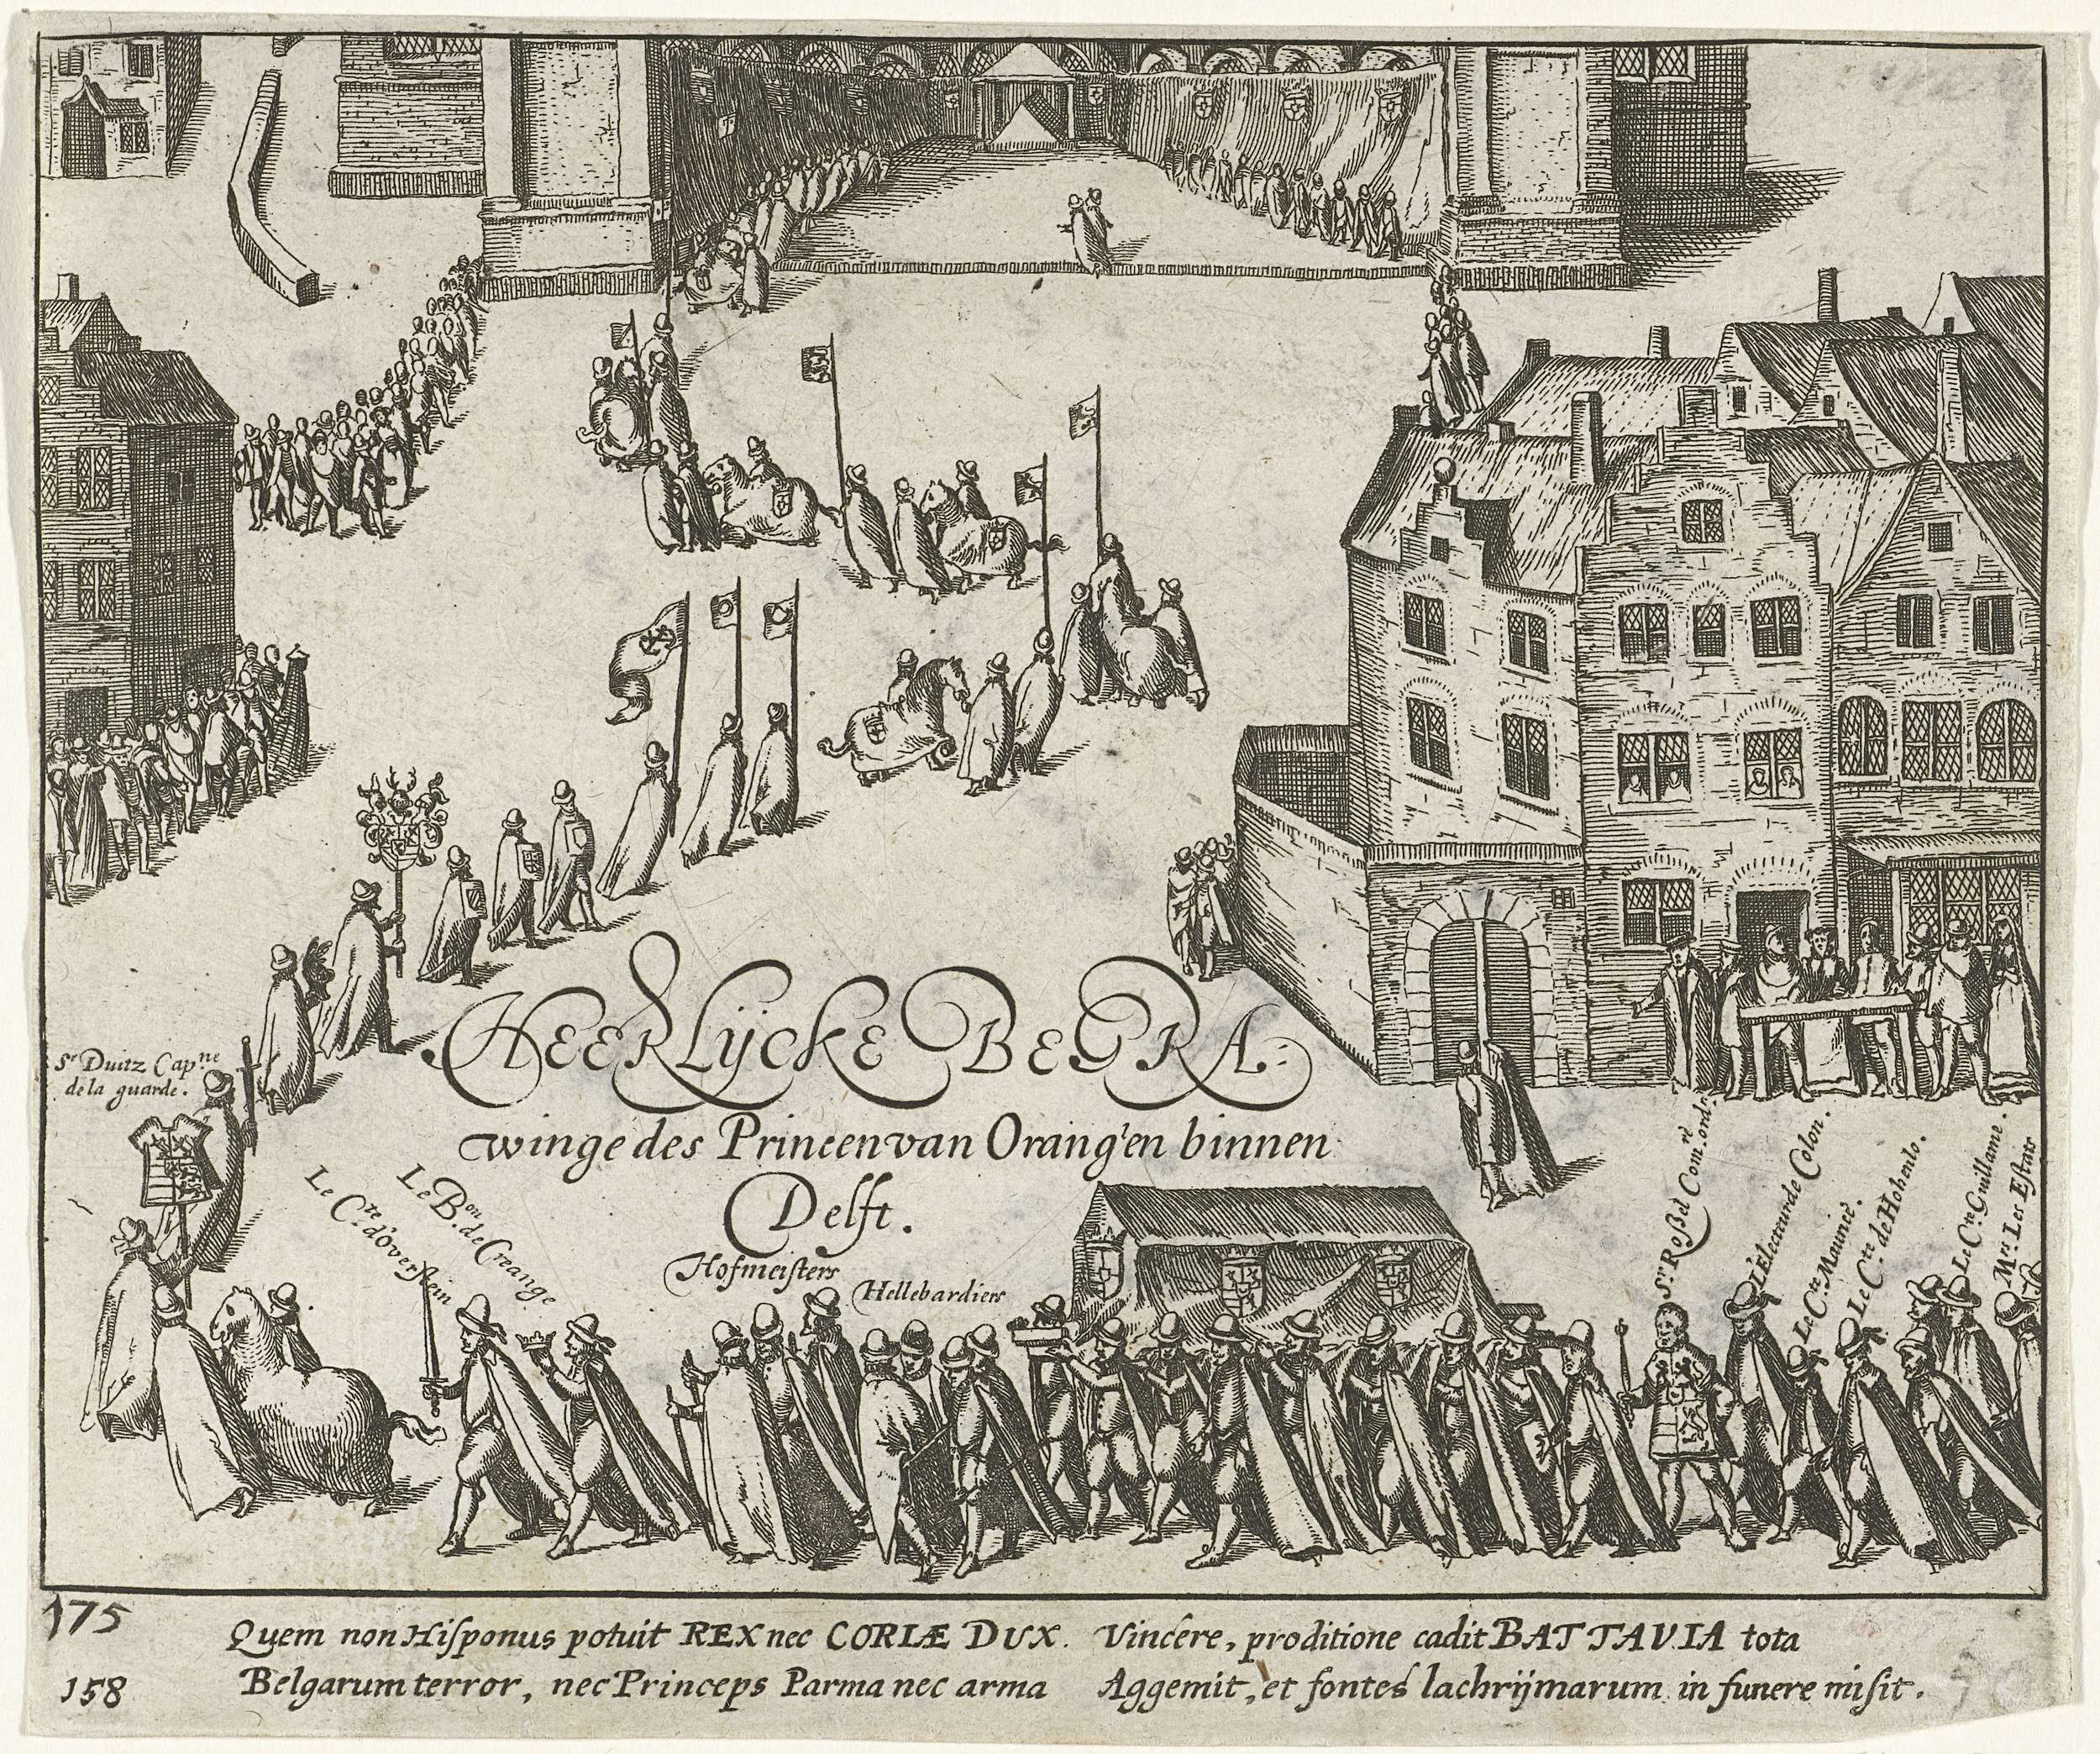 HEERLYCKE BEGRA:
winge des Princen van Orang'en binnen
Delft.
Sr Duitz Capne
de la guarde.
Le Cte d'overstein
Le Bon de Creange
Hofmeisters
Hellebardiers
Sr Roßel Com. ordre
L'Electeur de Colon.
Le Cte Maurice.
Le Cte de Hohenlo.
Le Cte Guillame.
Mrs Les Estats
175
158
Quem non Hisponus potuit REX nec CORIÆ DUX. Vincere, proditione cadit BATTAVIA tota
Belgarum terror, nec Princeps Parma nec arma Aggemit, et fontes lachrijmarum in funere misit.